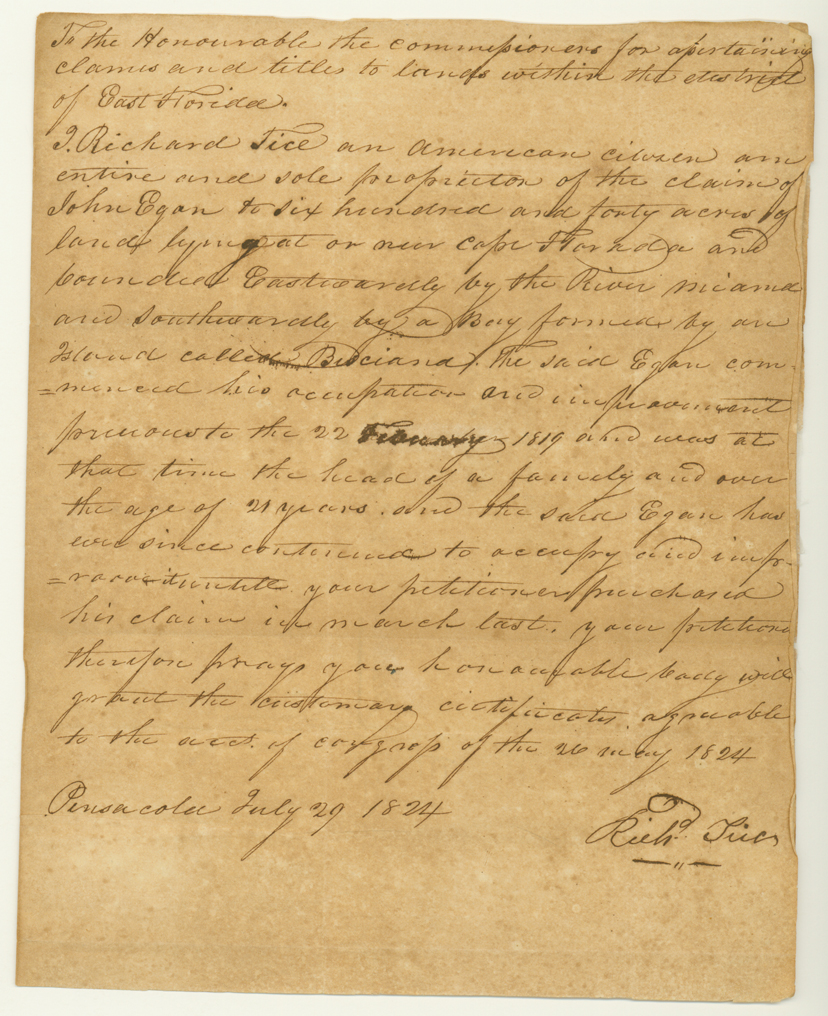 To the Honourable the commissioners for asertaining
claims and titles to lands within the district
of East Florida.
I. Richard Tice an American citizen am
entire and sole proprietor of the claim of
John Egan to six hundred and forty acres of
land lying at or near Cape Florada and
bounded Eastwardly by the River miama
and southwardly by a Bay formed by an
Island called Bisciana. The said Egan com-
=menced his occupation and improvement
previous to the 22 February 1819 and was at
that time the head of a family and over
the age of 21 years. and the said Egan has
ever since continued to occupy and imp-
=rove it untill your petitioner purchased
his claim in march last. your petitioner
therefore prays your honourable body will
grant the customary certificates agreeable
to the acts of congress of the 26 may 1824
Pensacola July 29 1824
Richd Tice